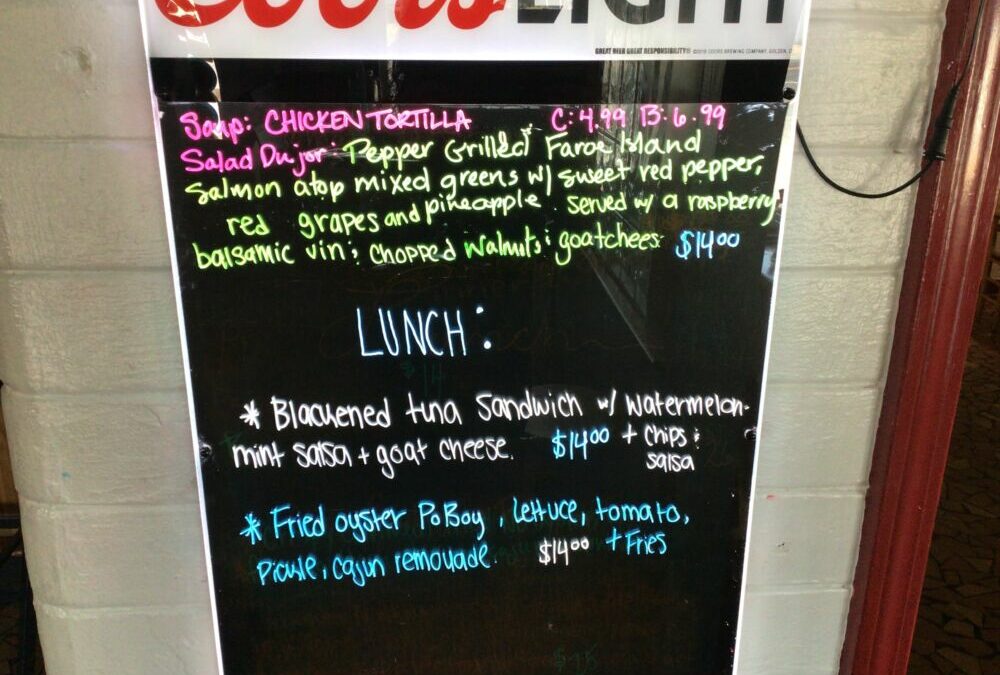 Coors LIGHT
GREAT BEER GREAT RESPONSIBILITY®
Soup: CHICKEN TORTILLA C: 4.99 B: 6.99
Salad Dujor: Pepper Grilled Faroe Island
Salmon atop mixed greens w/ sweet red pepper,
red grapes and pineapple. served w/ a raspberry
balsamic vin; chopped walnuts; goatchees $14.00
LUNCH:
* Blackened tuna Sandwich w/ watermelon-
mint salsa + goat cheese. $14.00 + chips &
salsa
* Fried oyster PoBoy, lettuce, tomato,
Pickle, cajun remouade. $14.00 + Fries